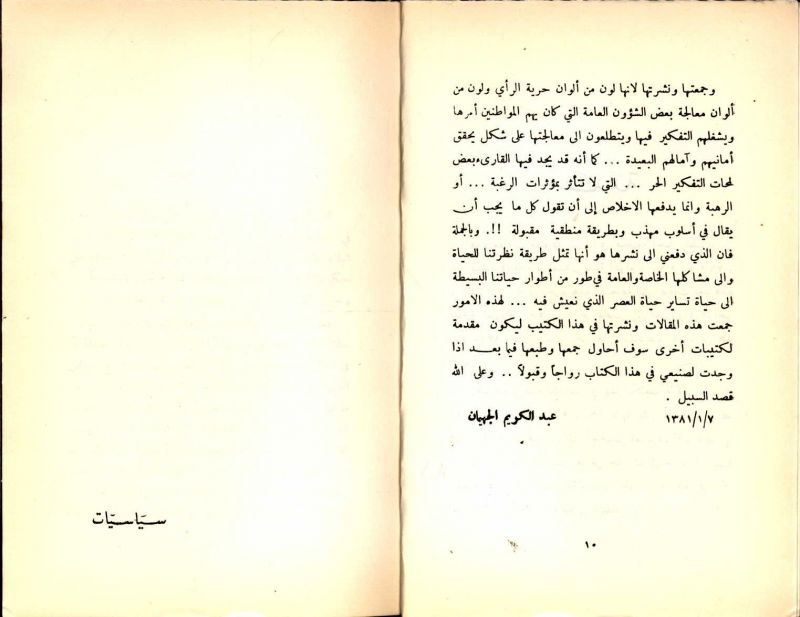 وجمعتها ونشرتها لانها لون من ألوان حرية الرأي ولون من
ألوان معالجة بعض الشؤون العامة التي كان يهم المواطنين أمرها
ويشغلهم التفكير فيها ويتطلعون الى معالجتها على شكل يحقق
أمانيهم وآمالهم البعيدة ... كما أنه قد يجد فيها القارىء بعض
لمحات التفكير الحر ... التي لا تتأثر بمؤثرات الرغبة ... أو
الرهبة وانما يدفعها الاخلاص إلى أن تقول كل ما يجب أن
يقال في أسلوب مهذب وبطريقة منطقية مقبولة !!. وبالجملة
فان الذي دفعني الى نشرها هو أنها تمثل طريقة نظرتنا للحياة
والى مشاكلها الخاصة والعامة في طور من أطوار حياتنا البسيطة
الى حياة تساير حياة العصر الذي نعيش فيه ... لهذه الامور
جمعت هذه المقالات ونشرتها في هذا الكتيب ليكون مقدمة
لكتيبات أخرى سوف أحاول جمعها وطبعها فيما بعد اذا
وجدت لصنيعي في هذا الكتاب رواجاً وقبولاً .. وعلى الله
قصد السبيل .
١٣٨١/١/٧ عبد الكريم الجهيان
١٠
سياسيّات